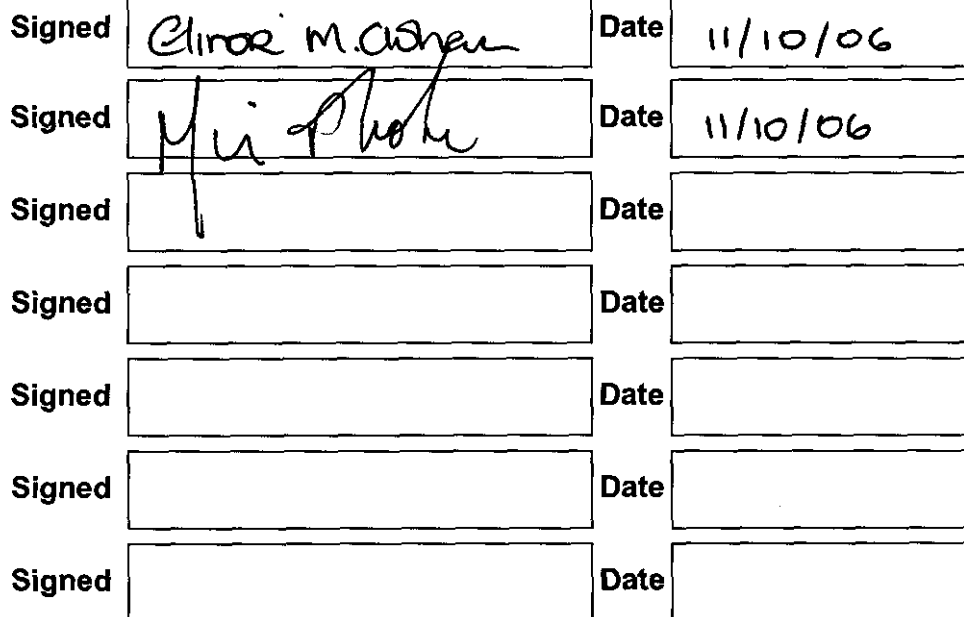 Signed Elinor M. Date 11/10/06
Signed Date 11/10/06
Signed Date
Signed Date
Signed Date
Signed Date
Signed Date